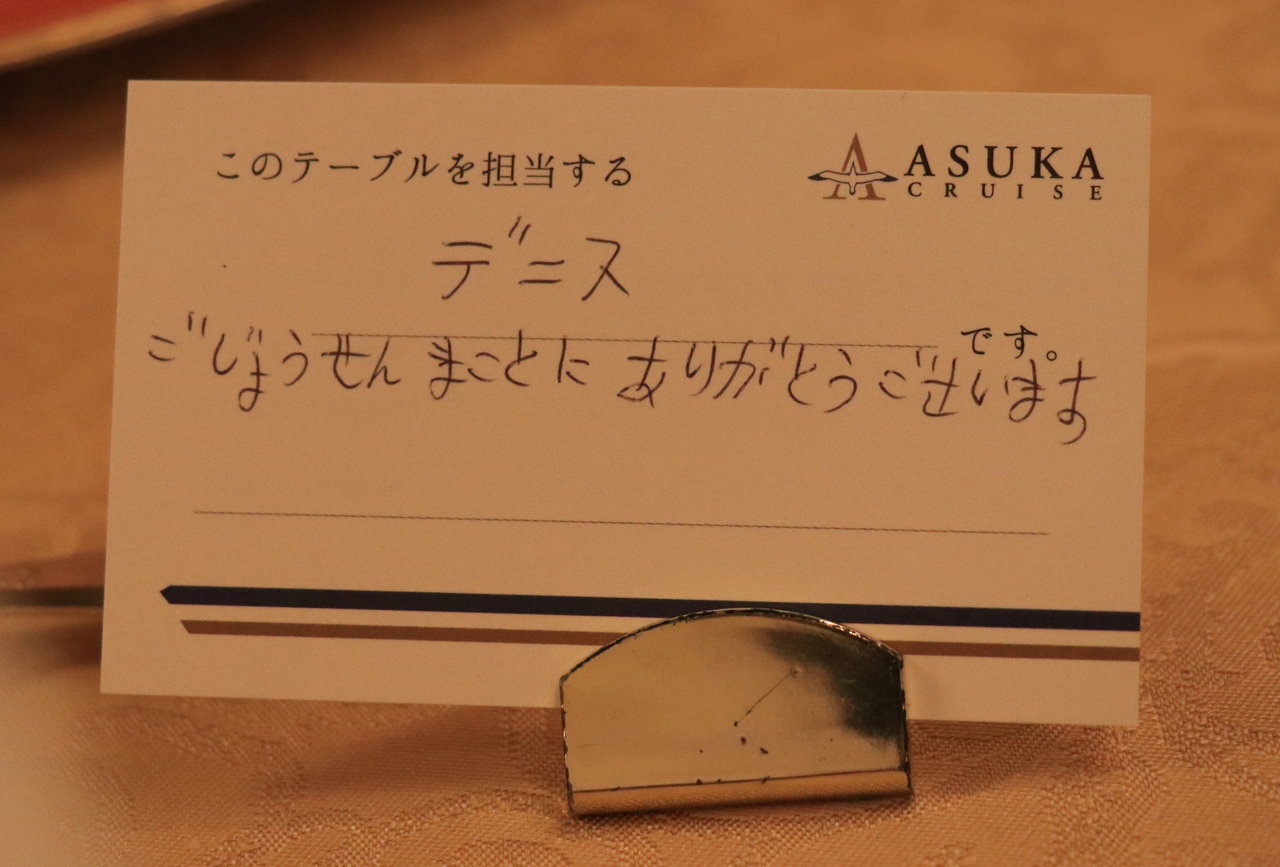 このテーブルを担当する
ASUKA
CRUISE
デニス
です。
ごじょうせん まことに ありがとうございます